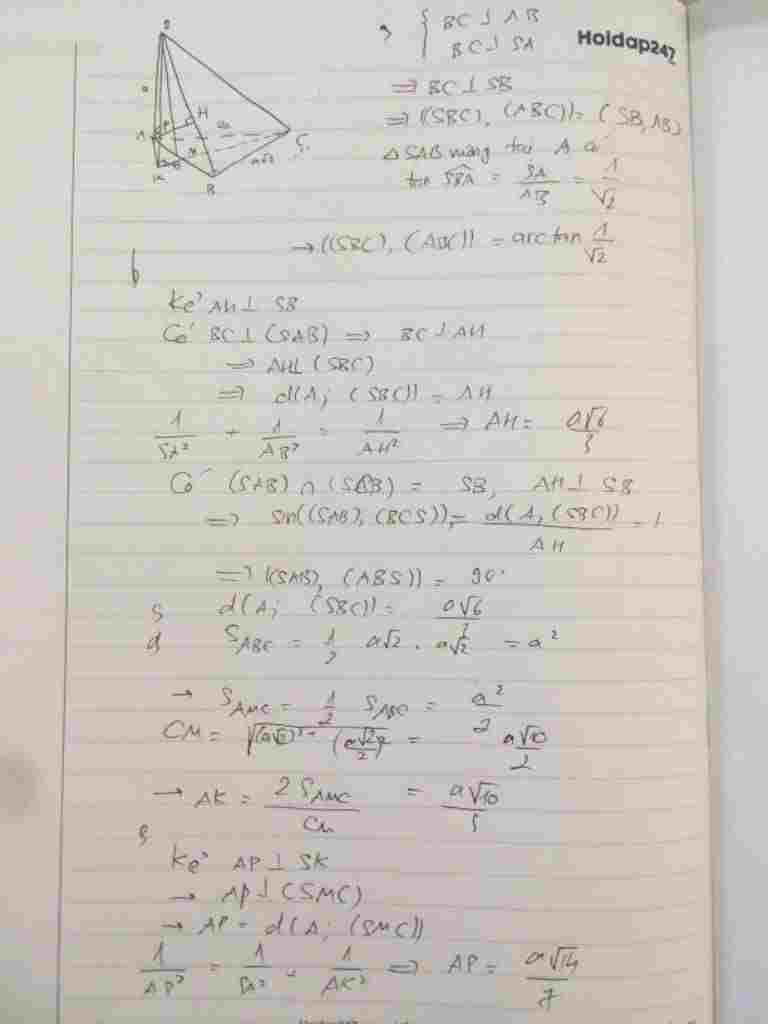 S
a
H
P
A
2a
C
M
K
B
a√2
a, { BC ⊥ AB
BC ⊥ SA
Holdap247
⇒ BC ⊥ SB
⇒ ((SBC), (ABC)) = (SB, AB)
Δ SAB vuông tại A có
tan SBA = SA/AB = 1/√2
→ ((SBC), (ABC)) = arctan 1/√2
b
Kẻ AH ⊥ SB
Có BC ⊥ (SAB) ⇒ BC ⊥ AH
⇒ AH ⊥ (SBC)
⇒ d(A; (SBC)) = AH
1/SA² + 1/AB² = 1/AH² ⇒ AH = a√6/3
Có (SAB) ∩ (SCB) = SB, AH ⊥ SB
⇒ sin((SAB), (BCS)) = d(A, (SBC))/AH = 1
⇒ ((SAB), (ABS)) = 90°
c d(A; (SBC)) = a√6/3
d S_ABC = 1/2 a√2 . a√2 = a²
→ S_AMC = 1/2 S_ABC = a²/2
CM = √((a√2)² + (a√2/2)²) = a√10/2
→ AK = 2S_AMC/CM = a√10/5
e
Kẻ AP ⊥ SK
→ AP ⊥ (SMC)
→ AP = d(A; (SMC))
1/AP² = 1/SA² + 1/AK² ⇒ AP = a√14/7